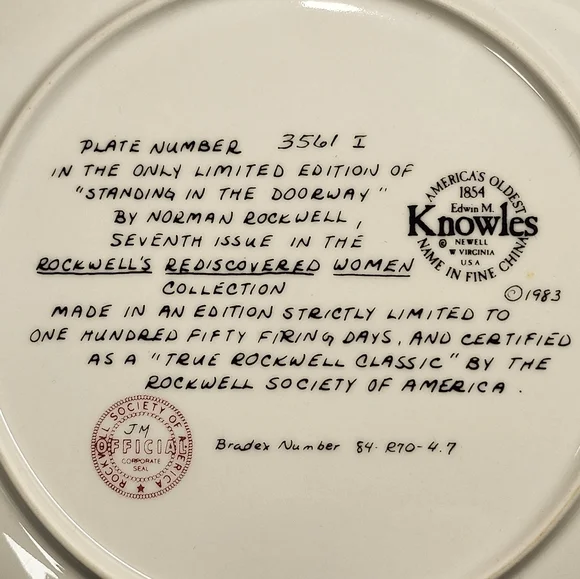 PLATE NUMBER 3561 I
IN THE ONLY LIMITED EDITION OF
"STANDING IN THE DOORWAY"
BY NORMAN ROCKWELL,
SEVENTH ISSUE IN THE
ROCKWELL'S REDISCOVERED WOMEN
COLLECTION
MADE IN AN EDITION STRICTLY LIMITED TO
ONE HUNDRED FIFTY FIRING DAYS, AND CERTIFIED
AS A "TRUE ROCKWELL CLASSIC" BY THE
ROCKWELL SOCIETY OF AMERICA.
AMERICA'S OLDEST
1854
Edwin M.
Knowles
© NEWELL
W VIRGINIA
USA
NAME IN FINE CHINA
©1983
ROCKWELL SOCIETY OF AMERICA
JM
OFFICIAL
CORPORATE
SEAL
Bradex Number 84-R70-4.7